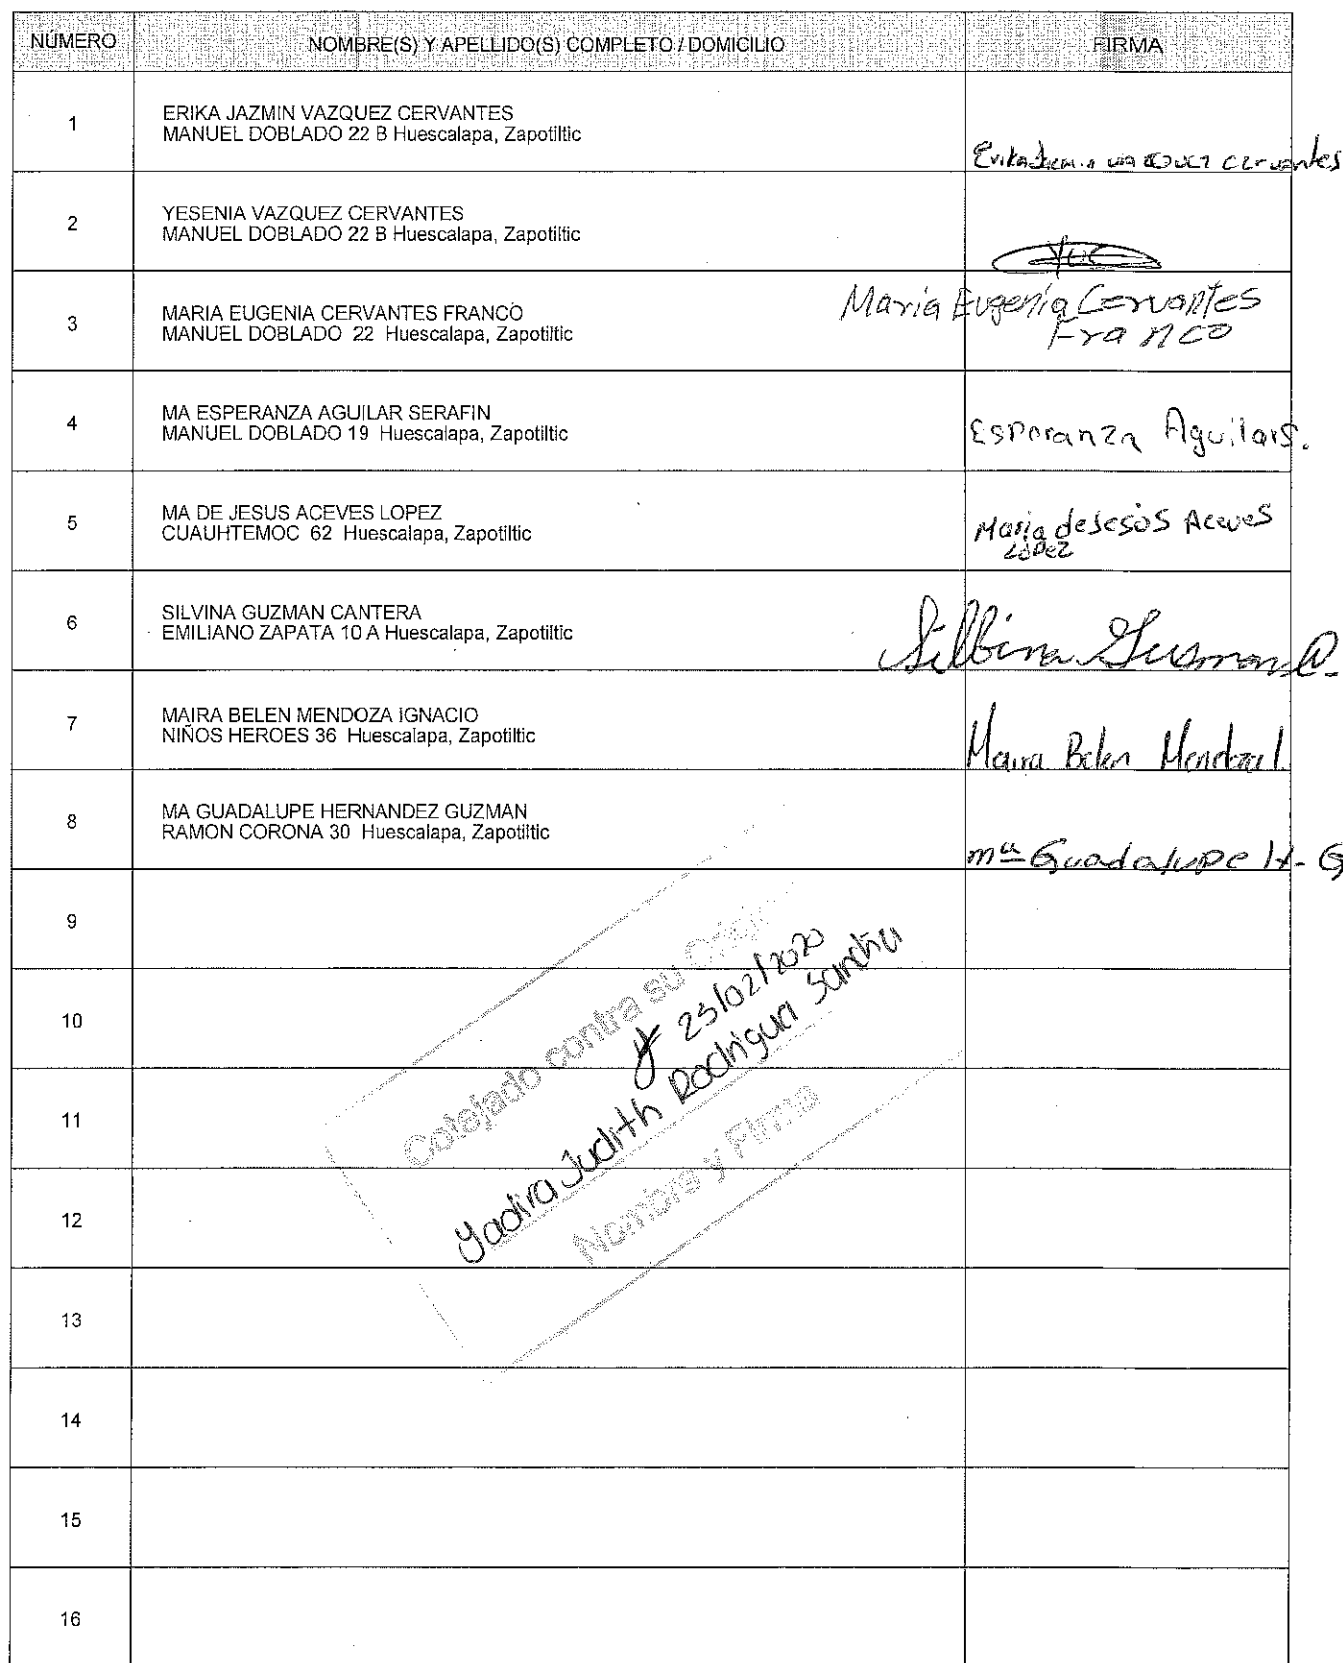 NÚMERO NOMBRE(S) Y APELLIDO(S) COMPLETO / DOMICILIO FIRMA
1 ERIKA JAZMIN VAZQUEZ CERVANTES
MANUEL DOBLADO 22 B Huescalapa, Zapotiltic
cervantes
2 YESENIA VAZQUEZ CERVANTES
MANUEL DOBLADO 22 B Huescalapa, Zapotiltic
3 MARIA EUGENIA CERVANTES FRANCO
MANUEL DOBLADO 22 Huescalapa, Zapotiltic
Maria Eugenia Cervantes
Franco
4 MA ESPERANZA AGUILAR SERAFIN
MANUEL DOBLADO 19 Huescalapa, Zapotiltic
Esperanza Aguilar S.
5 MA DE JESUS ACEVES LOPEZ
CUAUHTEMOC 62 Huescalapa, Zapotiltic
Maria de Jesós Aceves
López
6 SILVINA GUZMAN CANTERA
EMILIANO ZAPATA 10 A Huescalapa, Zapotiltic
Silbina Gusman C.
7 MAIRA BELEN MENDOZA IGNACIO
NIÑOS HEROES 36 Huescalapa, Zapotiltic
Maira Belen Mendoza I.
8 MA GUADALUPE HERNANDEZ GUZMAN
RAMON CORONA 30 Huescalapa, Zapotiltic
ma Guadalupe H- G
9
10
11
12
13
14
15
16
Cotejado contra su
25/02/2020
Yadira Judith Rodríguez
Nombre y Firma